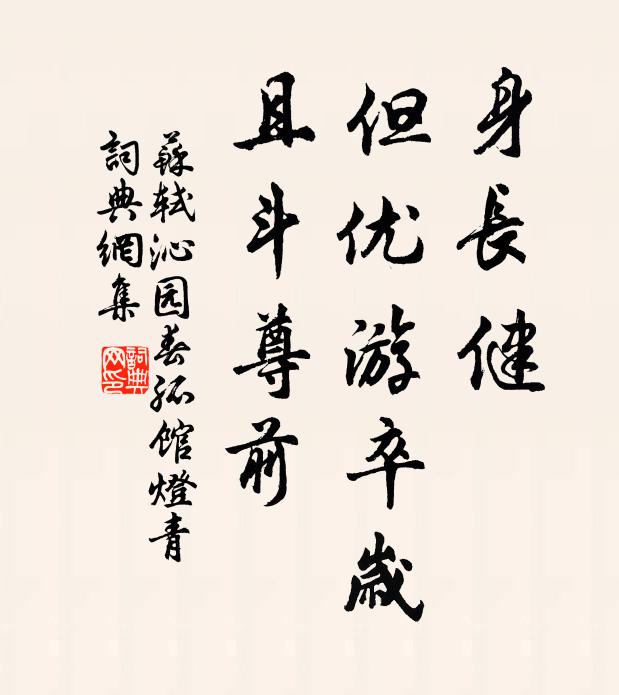 身長健
但优游卒歲
且斗尊前
蘇軾沁园春孤館燈青
詞典網集
詞典
网印